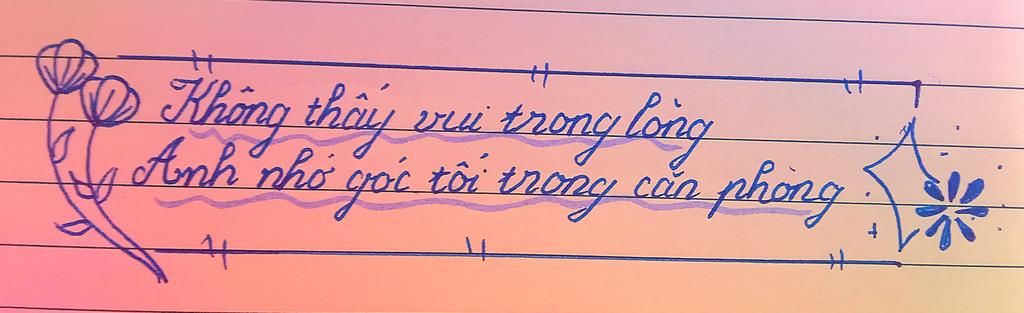 Không thấy vui trong lòng
Anh nhớ góc tối trong căn phòng